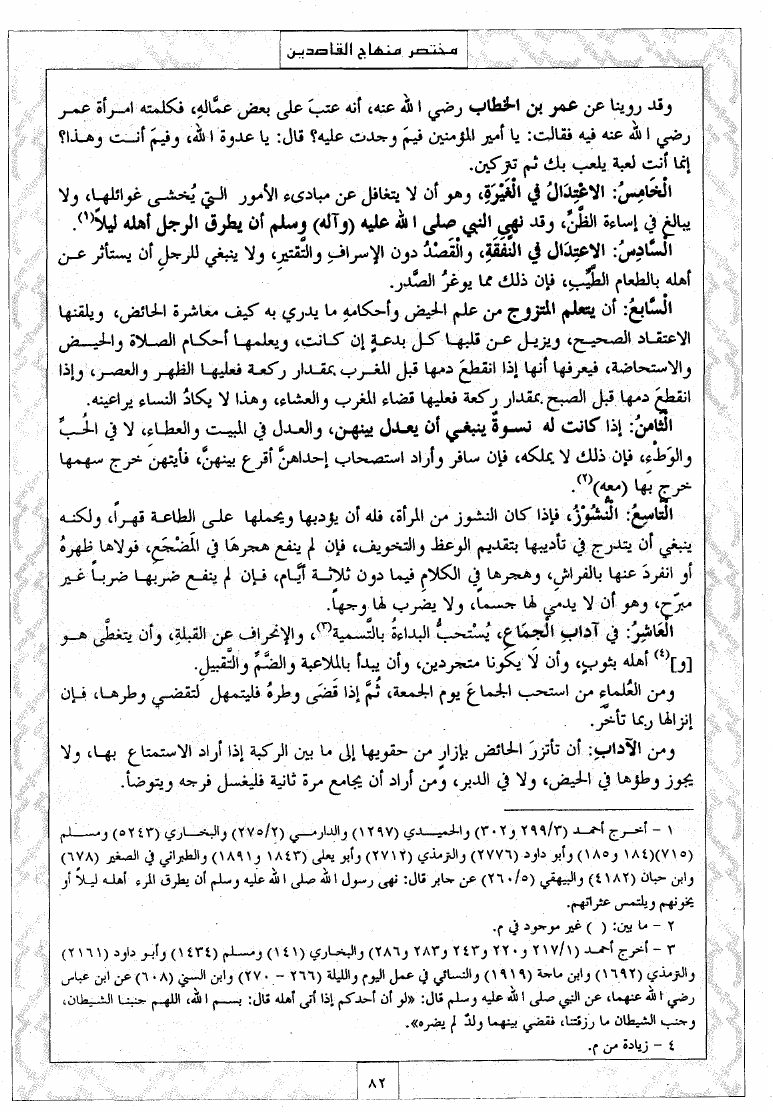 مختصر منهاج القاصدين
وقد روينا عن عمر بن الخطاب رضي الله عنه، أنه عتبَ على بعض عمَّالهِ، فكلمته امرأة عمر
رضي الله عنه فيه فقالت: يا أمير المؤمنين فيمَ وجدت عليه؟ قال: يا عدوة الله، وفيمَ أنت وهذا؟
إنما أنت لعبة يلعب بك ثم تتركين.
الْخَامِسُ: الاعْتِدَالُ في الْغَيْرَةِ، وهو أن لا يتغافل عن مبادىء الأمور التي يُخشى غوائلها، ولا
يبالغ في إساءة الظَّنِّ، وقد نهي النبي صلى الله عليه (وآله) وسلم أن يطرق الرجل أهله ليلاً(١).
السَّادِسُ: الاعْتِدَال في النَّفَقَةِ، والْقَصْدُ دون الإسرافِ والتَّقتيرِ، ولا ينبغي للرجلِ أن يستأثر عن
أهله بالطعام الطَّيِّبِ، فإن ذلك مما يوغرُ الصَّدر.
السَّابعُ: أن يتعلم المتزوج من علم الحيض وأحكامهِ ما يدري به كيف معاشرة الحائض، ويلقنها
الاعتقاد الصحيح، ويزيل عن قلبها كل بدعةٍ إن كانت، ويعلمها أحكام الصلاة والحيض
والاستحاضة، فيعرفها أنها إذا انقطعَ دمها قبل المغرب بمقدار ركعة فعليها الظهر والعصر، وإذا
انقطعَ دمها قبل الصبح بمقدار ركعة فعليها قضاء المغرب والعشاء، وهذا لا يكادُ النساء يراعينه.
الْثَّامنُ: إذا كانت له نسوةٌ ينبغي أن يعدل بينهن، والعدل في المبيت والعطاء، لا في الحُبِّ
والوَطْءِ، فإن ذلك لا يملكه، فإن سافر وأراد استصحاب إحداهنَّ أقرع بينهنَّ، فأيتهنَ خرج سهمها
خرج بها (معه)(٢).
الْتَّاسِعُ: الْنُّشُوْزُ، فإذا كان النشوز من المرأة، فله أن يؤدبها ويحملها على الطاعة قهراً، ولكنه
ينبغي أن يتدرج في تأديبها بتقديم الوعظ والتخويف، فإن لم ينفع هجرهَا في المَضْجَعِ، فولاها ظهرهُ
أو انفردَ عنها بالفراشِ، وهجرها في الكلامِ فيما دون ثلاثة أيَّام، فإن لم ينفع ضربها ضرباً غير
مبرّح، وهو أن لا يدمي لها جسماً، ولا يضرب لها وجهاً.
الْعَاشِرُ: في آدَابِ الْجمَاعِ، يُسْتَحبُّ البداءةُ بالتَّسميةِ(٣)، والإنحراف عن القبلةِ، وأن يتغطَّى هو
[و](٤) أهله بثوبٍ، وأن لَا يكونا متجردين، وأن يبدأ بالملاعبة والضَّمِّ والتَّقبيلِ.
ومن العُلماءِ من استحب الجماعَ يوم الجمعة، ثُمَّ إذا قَضَى وطرهُ فليتمهل لتقضي وطرها، فإن
إنزالها ربما تأخَّر.
ومن الآدَابِ: أن تأتزرَ الحائض بإزارٍ من حقويها إلى ما بين الركبة إذا أراد الاستمتاع بها، ولا
يجوز وطؤها في الحيض، ولا في الدبر، ومن أراد أن يجامع مرة ثانية فليغسل فرجه ويتوضأ.
١ – أخرج أحمد (٢٩٩/٣ و٣٠٢) والحميدي (١٢٩٧) والدارمي (٢٧٥/٢) والبخاري (٥٢٤٣) ومسلم
(٧١٥)(١٨٤ و١٨٥) وأبو داود (٢٧٧٦) والترمذي (٢٧١٢) وأبو يعلى (١٨٤٣ و١٨٩١) والطبراني في الصغير (٦٧٨)
وابن حبان (٤١٨٢) والبيهقي (٢٦٠/٥) عن جابر قال: نهى رسول الله صلى الله عليه وسلم أن يطرق المرء أهله ليلاً أو
يخونهم ويلتمس عثراتهم.
٢ – ما بين: ( ) غير موجود في م.
٣ – أخرج أحمد (٢١٧/١ و٢٢٠ و٢٤٣ و٢٨٣ و٢٨٦) والبخاري (١٤١) ومسلم (١٤٣٤) وأبو داود (٢١٦١)
والترمذي (١٦٩٢) وابن ماجة (١٩١٩) والنسائي في عمل اليوم والليلة (٢٦٦ – ٢٧٠) وابن السني (٦٠٨) عن ابن عباس
رضي الله عنهما، عن النبي صلى الله عليه وسلم قال: «لو أن أحدكم إذا أتى أهله قال: بسم الله، اللهم جنبنا الشيطان،
وجنب الشيطان ما رزقتنا، فقضي بينهما ولدٌ لم يضره».
٤ – زيادة من م.
٨٢